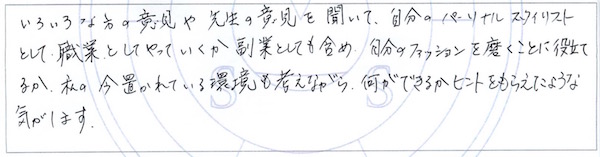 いろいろな方の意見や先生の意見を聞いて、自分のパーソナルスタイリスト
として、職業としてやっていくか副業としても含め、自分のファッションを磨くことに役立て
るか、私の今置かれている環境も考えながら、何ができるかヒントをもらえたような
気がします。